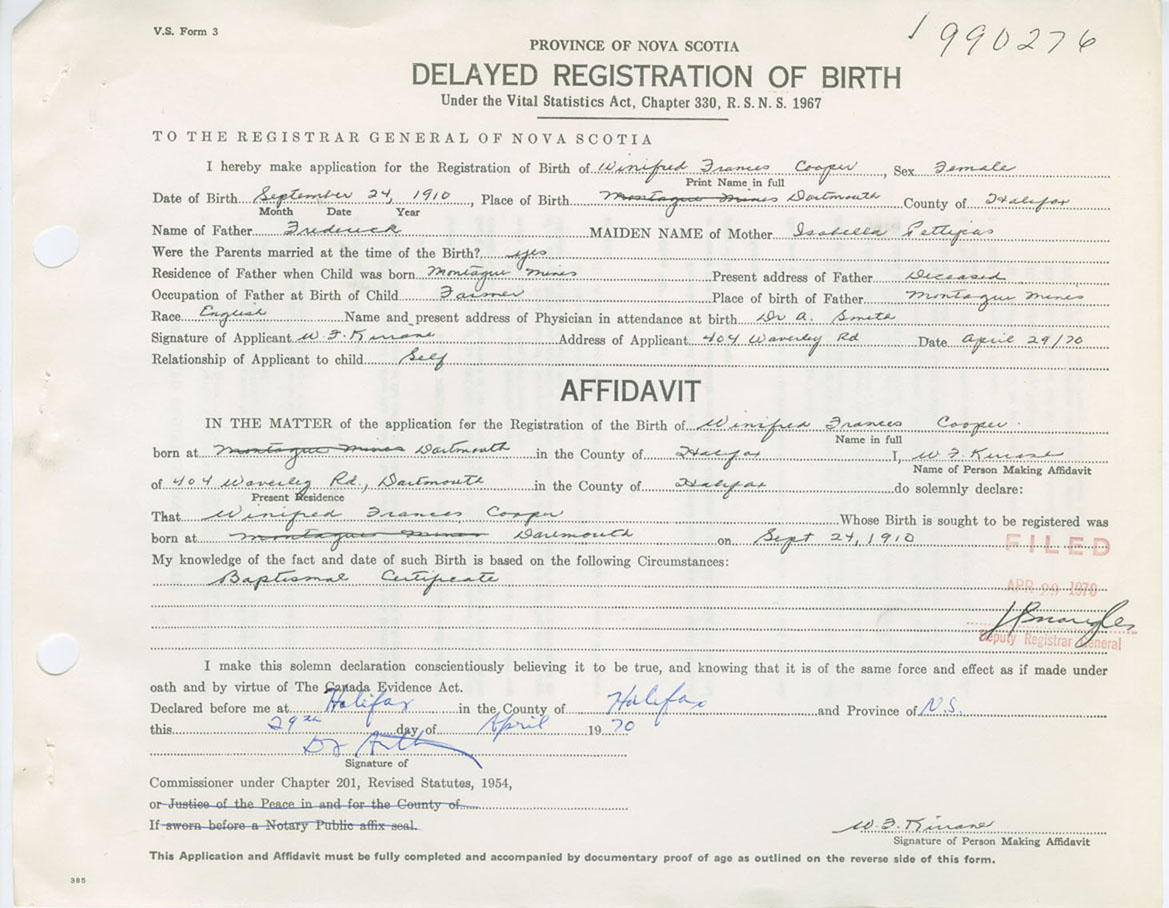 V.S. Form 3
1990276
PROVINCE OF NOVA SCOTIA
DELAYED REGISTRATION OF BIRTH
Under the Vital Statistics Act, Chapter 330, R.S.N.S. 1967
TO THE REGISTRAR GENERAL OF NOVA SCOTIA
I hereby make application for the Registration of Birth of Winifred Frances Cooper, Sex Female
Print Name in full
Date of Birth September 24, 1910, Place of Birth Montague Mines Dartmouth County of Halifax
Month Date Year
Name of Father Frederick MAIDEN NAME of Mother Isabella Pettipas
Were the Parents married at the time of the Birth? yes
Residence of Father when Child was born Montague Mines Present address of Father Deceased
Occupation of Father at Birth of Child Farmer Place of birth of Father Montague Mines
Race English Name and present address of Physician in attendance at birth Dr A. Smith
Signature of Applicant W. F. Kinrane Address of Applicant 404 Waverley Rd Date April 29/70
Relationship of Applicant to child Self
AFFIDAVIT
IN THE MATTER of the application for the Registration of the Birth of Winifred Frances Cooper
Name in full
born at Montague Mines Dartmouth in the County of Halifax I, W F
Name of Person Making Affidavit
of 404 Waverley Rd., Dartmouth in the County of Halifax do solemnly declare:
Present Residence
That Winifred Frances Cooper Whose Birth is sought to be registered was
born at Montague Mines Dartmouth on Sept 24, 1910
FILED
My knowledge of the fact and date of such Birth is based on the following Circumstances:
Baptismal Certificate
APR 29 1970
Deputy Registrar General
I make this solemn declaration conscientiously believing it to be true, and knowing that it is of the same force and effect as if made under
oath and by virtue of The Canada Evidence Act.
Declared before me at Halifax in the County of Halifax and Province of N.S.
this 29th day of April 1970
Signature of
Commissioner under Chapter 201, Revised Statutes, 1954,
or Justice of the Peace in and for the County of
If sworn before a Notary Public affix seal.
W. F.
Signature of Person Making Affidavit
This Application and Affidavit must be fully completed and accompanied by documentary proof of age as outlined on the reverse side of this form.
385